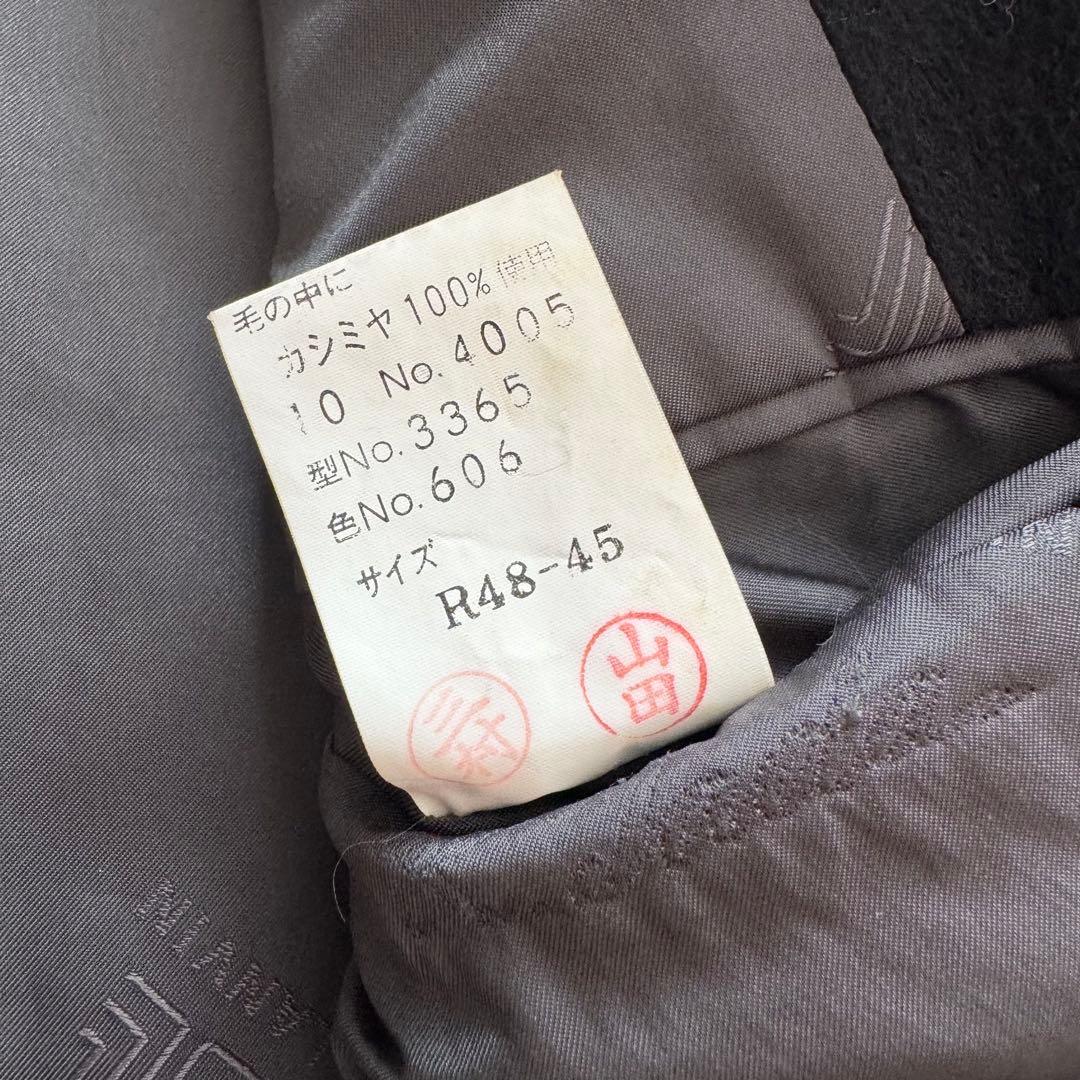 毛の中に
カシミヤ100%使用
10 No.4005
型No.3365
色No.606
サイズ
R48-45
山田
三村